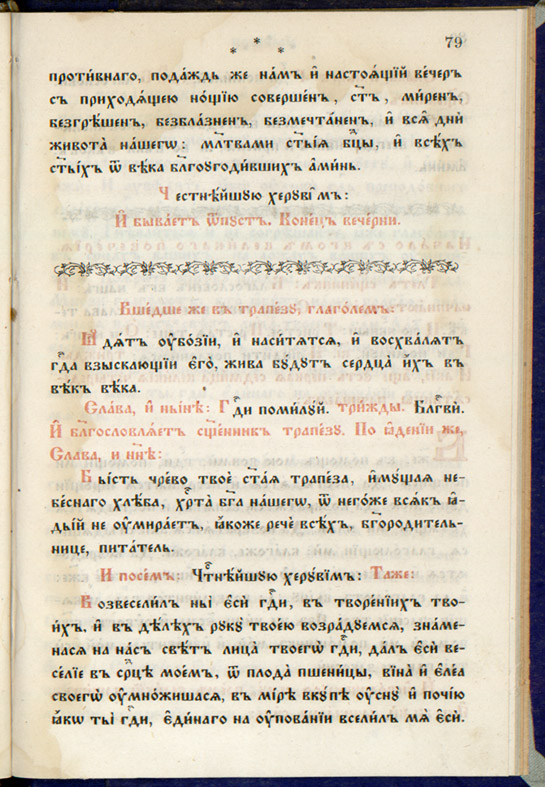 79
* * *
проти́внаго, пода́ждь же на́мъ и҆ настоѧ́щїй ве́черъ
съ приходѧ́щею но́щїю соверше́нъ, ст҃ъ, ми́ренъ,
безгрѣ́шенъ, безбла́зненъ, безмечта́ненъ, и҆ всѧ̑ дни̑
живота̀ на́шегѡ: мл҃твами ст҃ы́ѧ бц҃ы, и҆ всѣ́хъ
ст҃ы́хъ ѿ вѣ́ка бл҃гоугоди́вшихъ а҆ми́нь.
Честнѣ́йшую херꙋві̑мъ:
И҆ быва́етъ ѿпꙋ́стъ. Коне́цъ вече́рни.
Вше́дше же въ трапе́зꙋ, глаго́лемъ:
Ꙗ҆дѧ́тъ ᲂу҆бо́зїи, и҆ насы́тѧтсѧ, и҆ восхва́лѧтъ
гд҇а взыска́ющїи є҆го̀, жи́ва бꙋ́дꙋтъ сердца̀ и҆́хъ въ
вѣ́къ вѣ́ка.
Сла́ва, и҆ ны́нѣ: Гд҇и поми́лꙋй. три́жды. Бл҃гвѝ.
И҆ бл҃гословлѧ́етъ сщ҃е́нникъ трапе́зꙋ. По ꙗ҆де́нїи же,
Сла́ва, и҆ нн҃ѣ:
Бы́сть чре́во твоѐ ст҃а́ѧ трапе́за, и҆мꙋ́щаѧ не-
бе́снаго хлѣ́ба, хр҇та̀ бг҃а на́шегѡ, ѿ негѡ́же всѧ́къ ꙗ҆-
ды́й не ᲂу҆мира́етъ, ꙗ҆́коже речѐ всѣ́хъ, бг҃ороди́тель-
нице, пита́тель.
И҆ посе́мъ: Чт҇нѣ́йшꙋю херꙋві́мъ: Та́же:
Возвесели́лъ ны̀ є҆сѝ гд҇и, въ творе́нїихъ тво-
и҆́хъ. и҆ въ дѣ́лѣхъ рꙋкꙋ̀ твоє́ю возра́дꙋемсѧ, зна́ме-
насѧ на на́съ свѣ́тъ лица̀ твоегѡ̀ гд҇и, да́лъ є҆сѝ ве-
се́лїе въ ср҃цѣ мое́мъ, ѿ плода̀ пшени́цы, вїна̀ и҆ є҆ле́а
своегѡ̀ ᲂу҆мно́жишасѧ, въ ми́рѣ вкꙋ́пѣ ᲂу҆снꙋ̀ и҆ почі́ю
ꙗ҆́кѡ ты̀ гд҇и, є҆ди́наго на ᲂу҆пова́нїи всели́лъ мѧ̀ є҆сѝ.